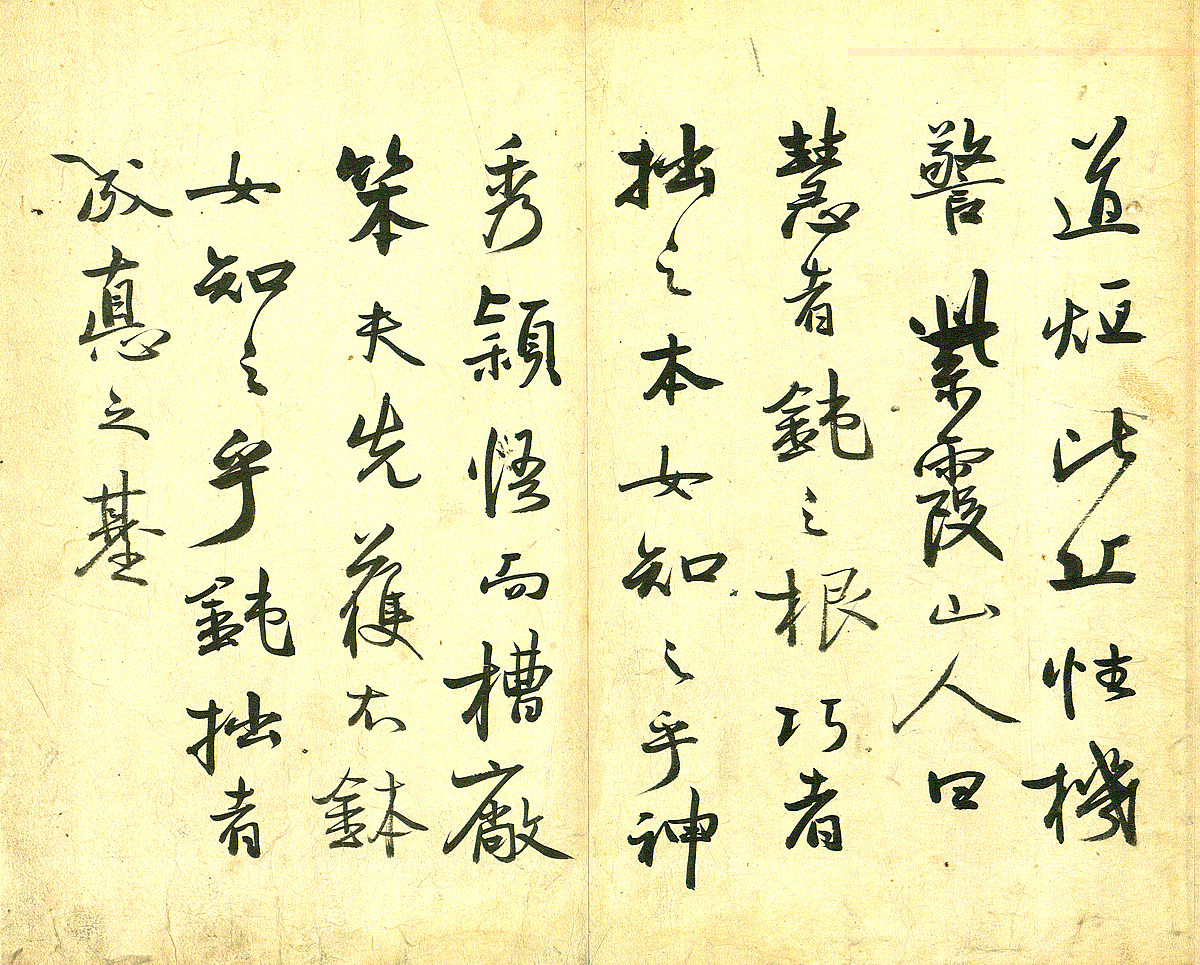 道烜此上性機
警紫霞山人曰
慧者鈍之根巧者
拙之本女知之乎神
秀穎悟而槽廠
笨夫先獲衣鉢
女知之乎鈍拙者
成真之基